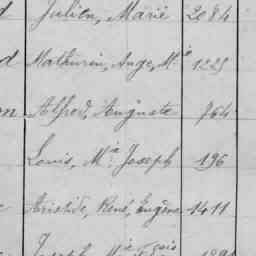 Julien, Marie 2084
Mathurin, Ange, M.ie 1225
Alfred, Auguste 764
Louis, M.ie Joseph 196
Aristide, René, Eugène 1411